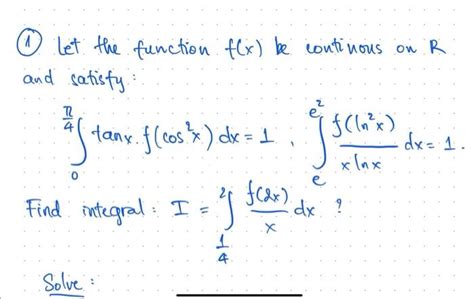 ① Let the function f(x) be continous on R
and satisfy:
∫_0^{π/4} tanx.f(cos²x) dx = 1 , ∫_e^{e²} f(ln²x)/(x lnx) dx = 1.
Find integral: I = ∫_{1/4}^2 f(2x)/x dx ?
Solve: